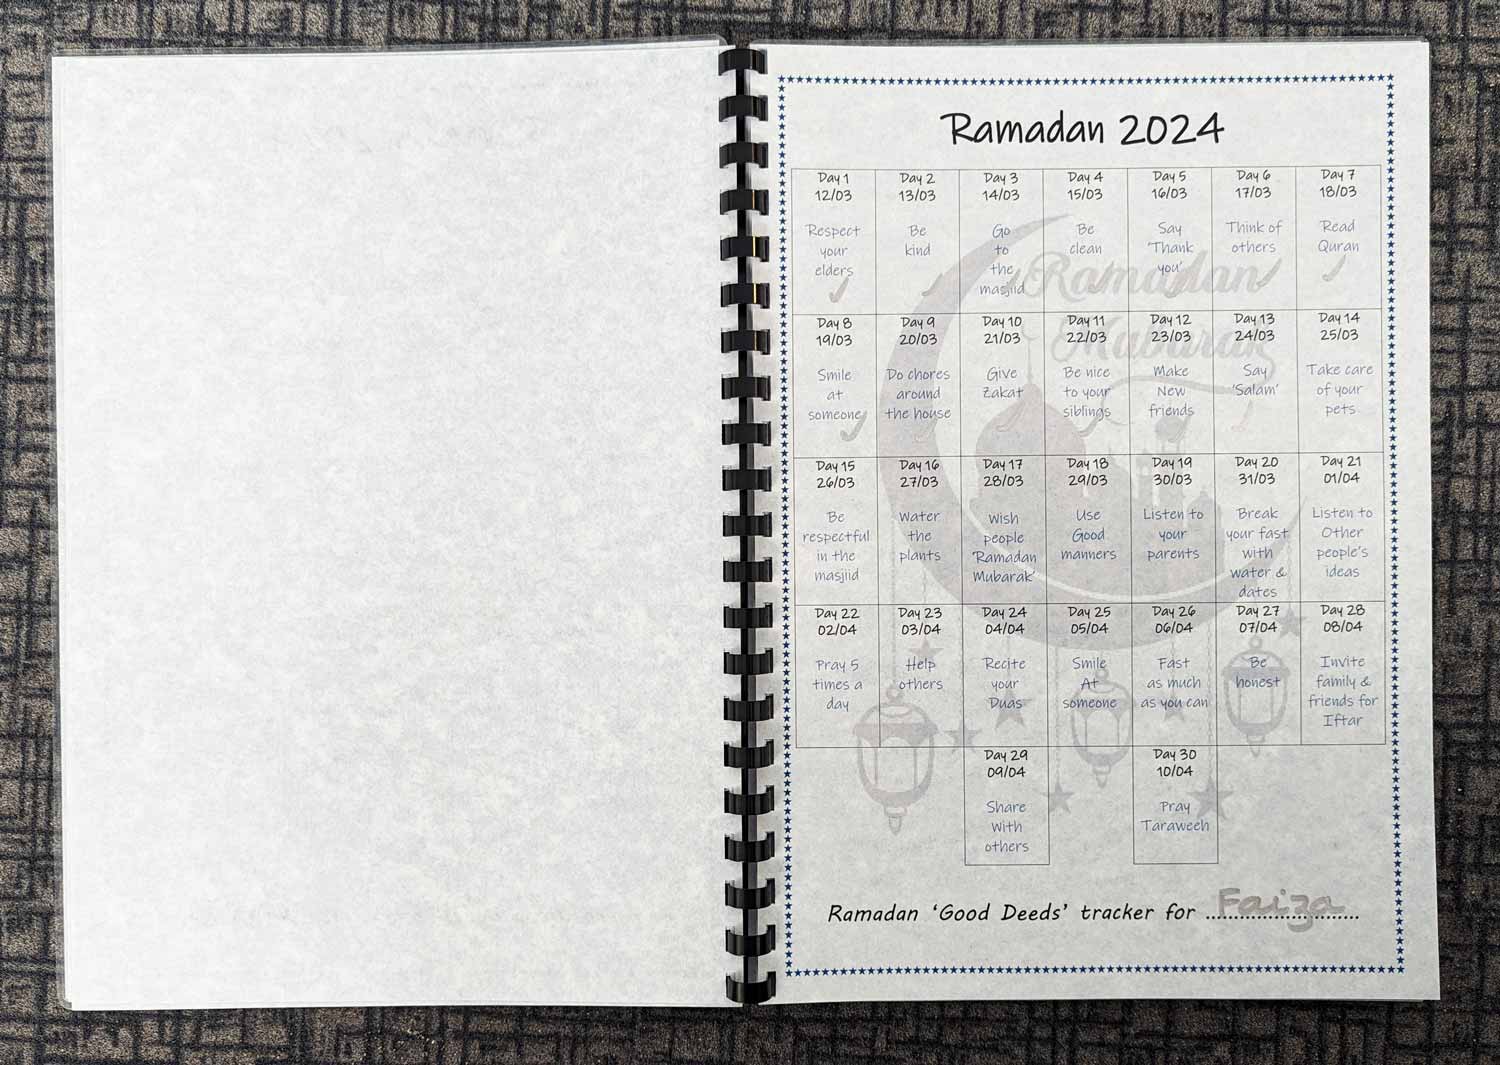 Ramadan 2024
Day 1
12/03
Respect
your
elders
Day 2
13/03
Be
kind
Day 3
14/03
Go
to
the
masjiid
Day 4
15/03
Be
clean
Day 5
16/03
Say
'Thank
you'
Day 6
17/03
Think of
others
Day 7
18/03
Read
Quran
Ramadan
Mubarak
Day 8
19/03
Smile
at
someone
Day 9
20/03
Do chores
around
the house
Day 10
21/03
Give
Zakat
Day 11
22/03
Be nice
to your
siblings
Day 12
23/03
Make
New
friends
Day 13
24/03
Say
'Salam'
Day 14
25/03
Take care
of your
pets
Day 15
26/03
Be
respectful
in the
masjiid
Day 16
27/03
Water
the
plants
Day 17
28/03
Wish
people
'Ramadan
Mubarak'
Day 18
29/03
Use
Good
manners
Day 19
30/03
Listen to
your
parents
Day 20
31/03
Break
your fast
with
water &
dates
Day 21
01/04
Listen to
Other
people's
ideas
Day 22
02/04
Pray 5
times a
day
Day 23
03/04
Help
others
Day 24
04/04
Recite
your
Duas
Day 25
05/04
Smile
At
someone
Day 26
06/04
Fast
as much
as you can
Day 27
07/04
Be
honest
Day 28
08/04
Invite
family &
friends for
Iftar
Day 29
09/04
Share
with
others
Day 30
10/04
Pray
Taraweeh
Ramadan 'Good Deeds' tracker for Faiza